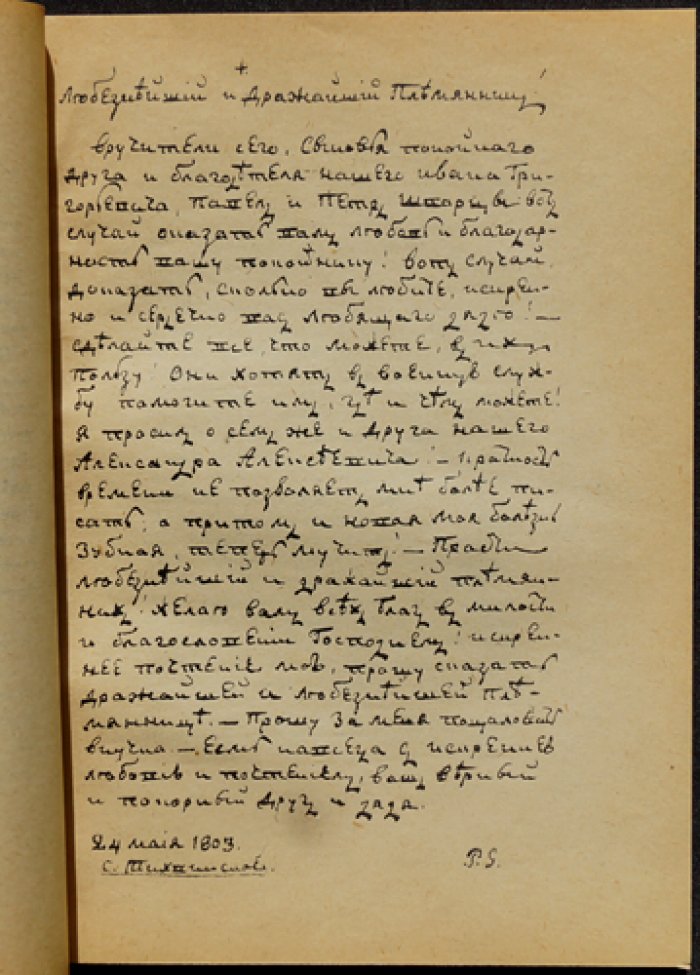 +
Любезнѣйшій и Дражайшій Плѣмянникъ!
вручители сего, Сыновья покойнаго
друга и благодѣтеля нашего Ивана Гри-
горьевича, Павелъ и Петръ Шварцы. вотъ
случай оказать вамъ любовь и благодар-
ность вашу покойнику! вотъ случай,
доказать, сколько вы любите, искрен-
но и сердечно васъ любящаго дядю! —
сдѣлайте все, что можете, въ ихъ
пользу! Они хотятъ въ военную служ-
бу помогите имъ, гдѣ и чѣмъ можете!
я просилъ о семъ же и друга нашего
Александра Алексѣевича! — Краткость
времени не позволяетъ мнѣ болѣе пи-
сать; а притомъ и новая моя болѣзнь
Зубная, теперь мучитъ! — Прости
любезнѣйшій и дражайшій плѣмян-
никъ! желаю вамъ всѣхъ благъ въ милости
и благословеніи Господнемъ! искрен-
нее почтеніе мое, прошу сказать
дражайшей и любезнѣйшей Плѣ-
мянницѣ. — Прошу за меня поцаловать
внучка. — Есмь навсегда съ искреннею
любовію и почтеніемъ, вашъ вѣрный
и покорный другъ и дядя.
24 маія 1803.
с. Тихвинское.
P. G.